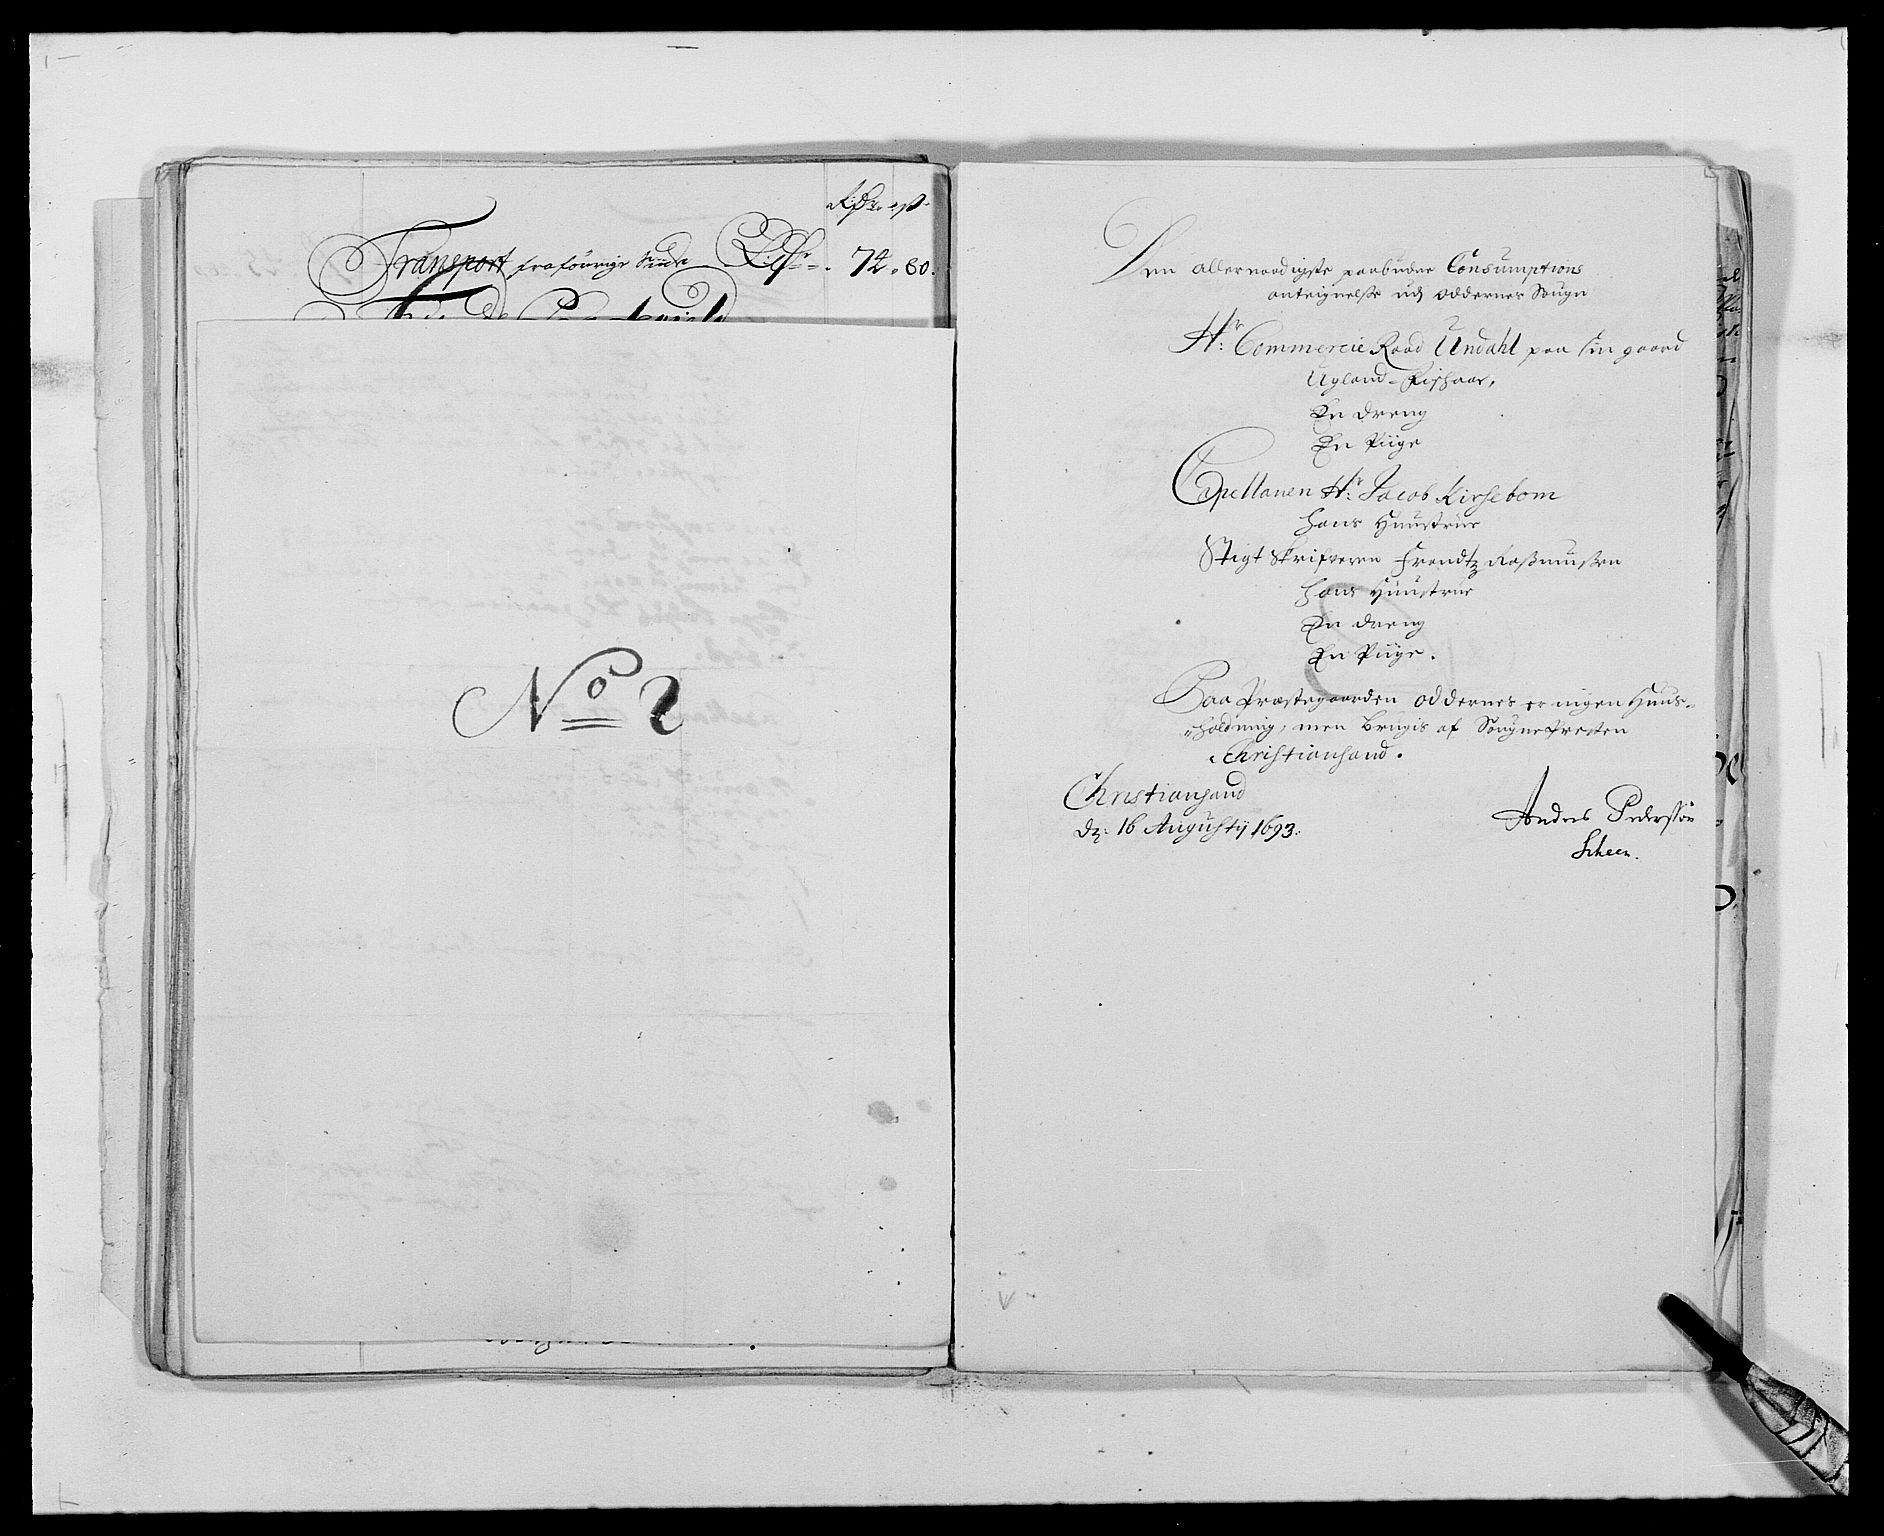 Rdr ß
Transport fra förrige Siide 74 . 80.
No 2
Den allernaadigste paabudne Consumptions
anteignelse udj Oddernes Sougn
Hr: Commercie Raad Undahl paa sin gaard
Ugland-Kishaar,
En dreng
En Piige
Capellanen Hr: Jacob Kirsebom
hans Huustrue
Stigt Skrifveren Frandtz Rasmussen
hans Huustrue
En dreng
En Piige.
Paa Præstegaarden Oddernes er ingen Huus-
holdning, men brugis af Sougne Presten
i Christiansand.
Christiansand
dz: 16 Augustij 1693.
Anders Pederssøn
Scheen.